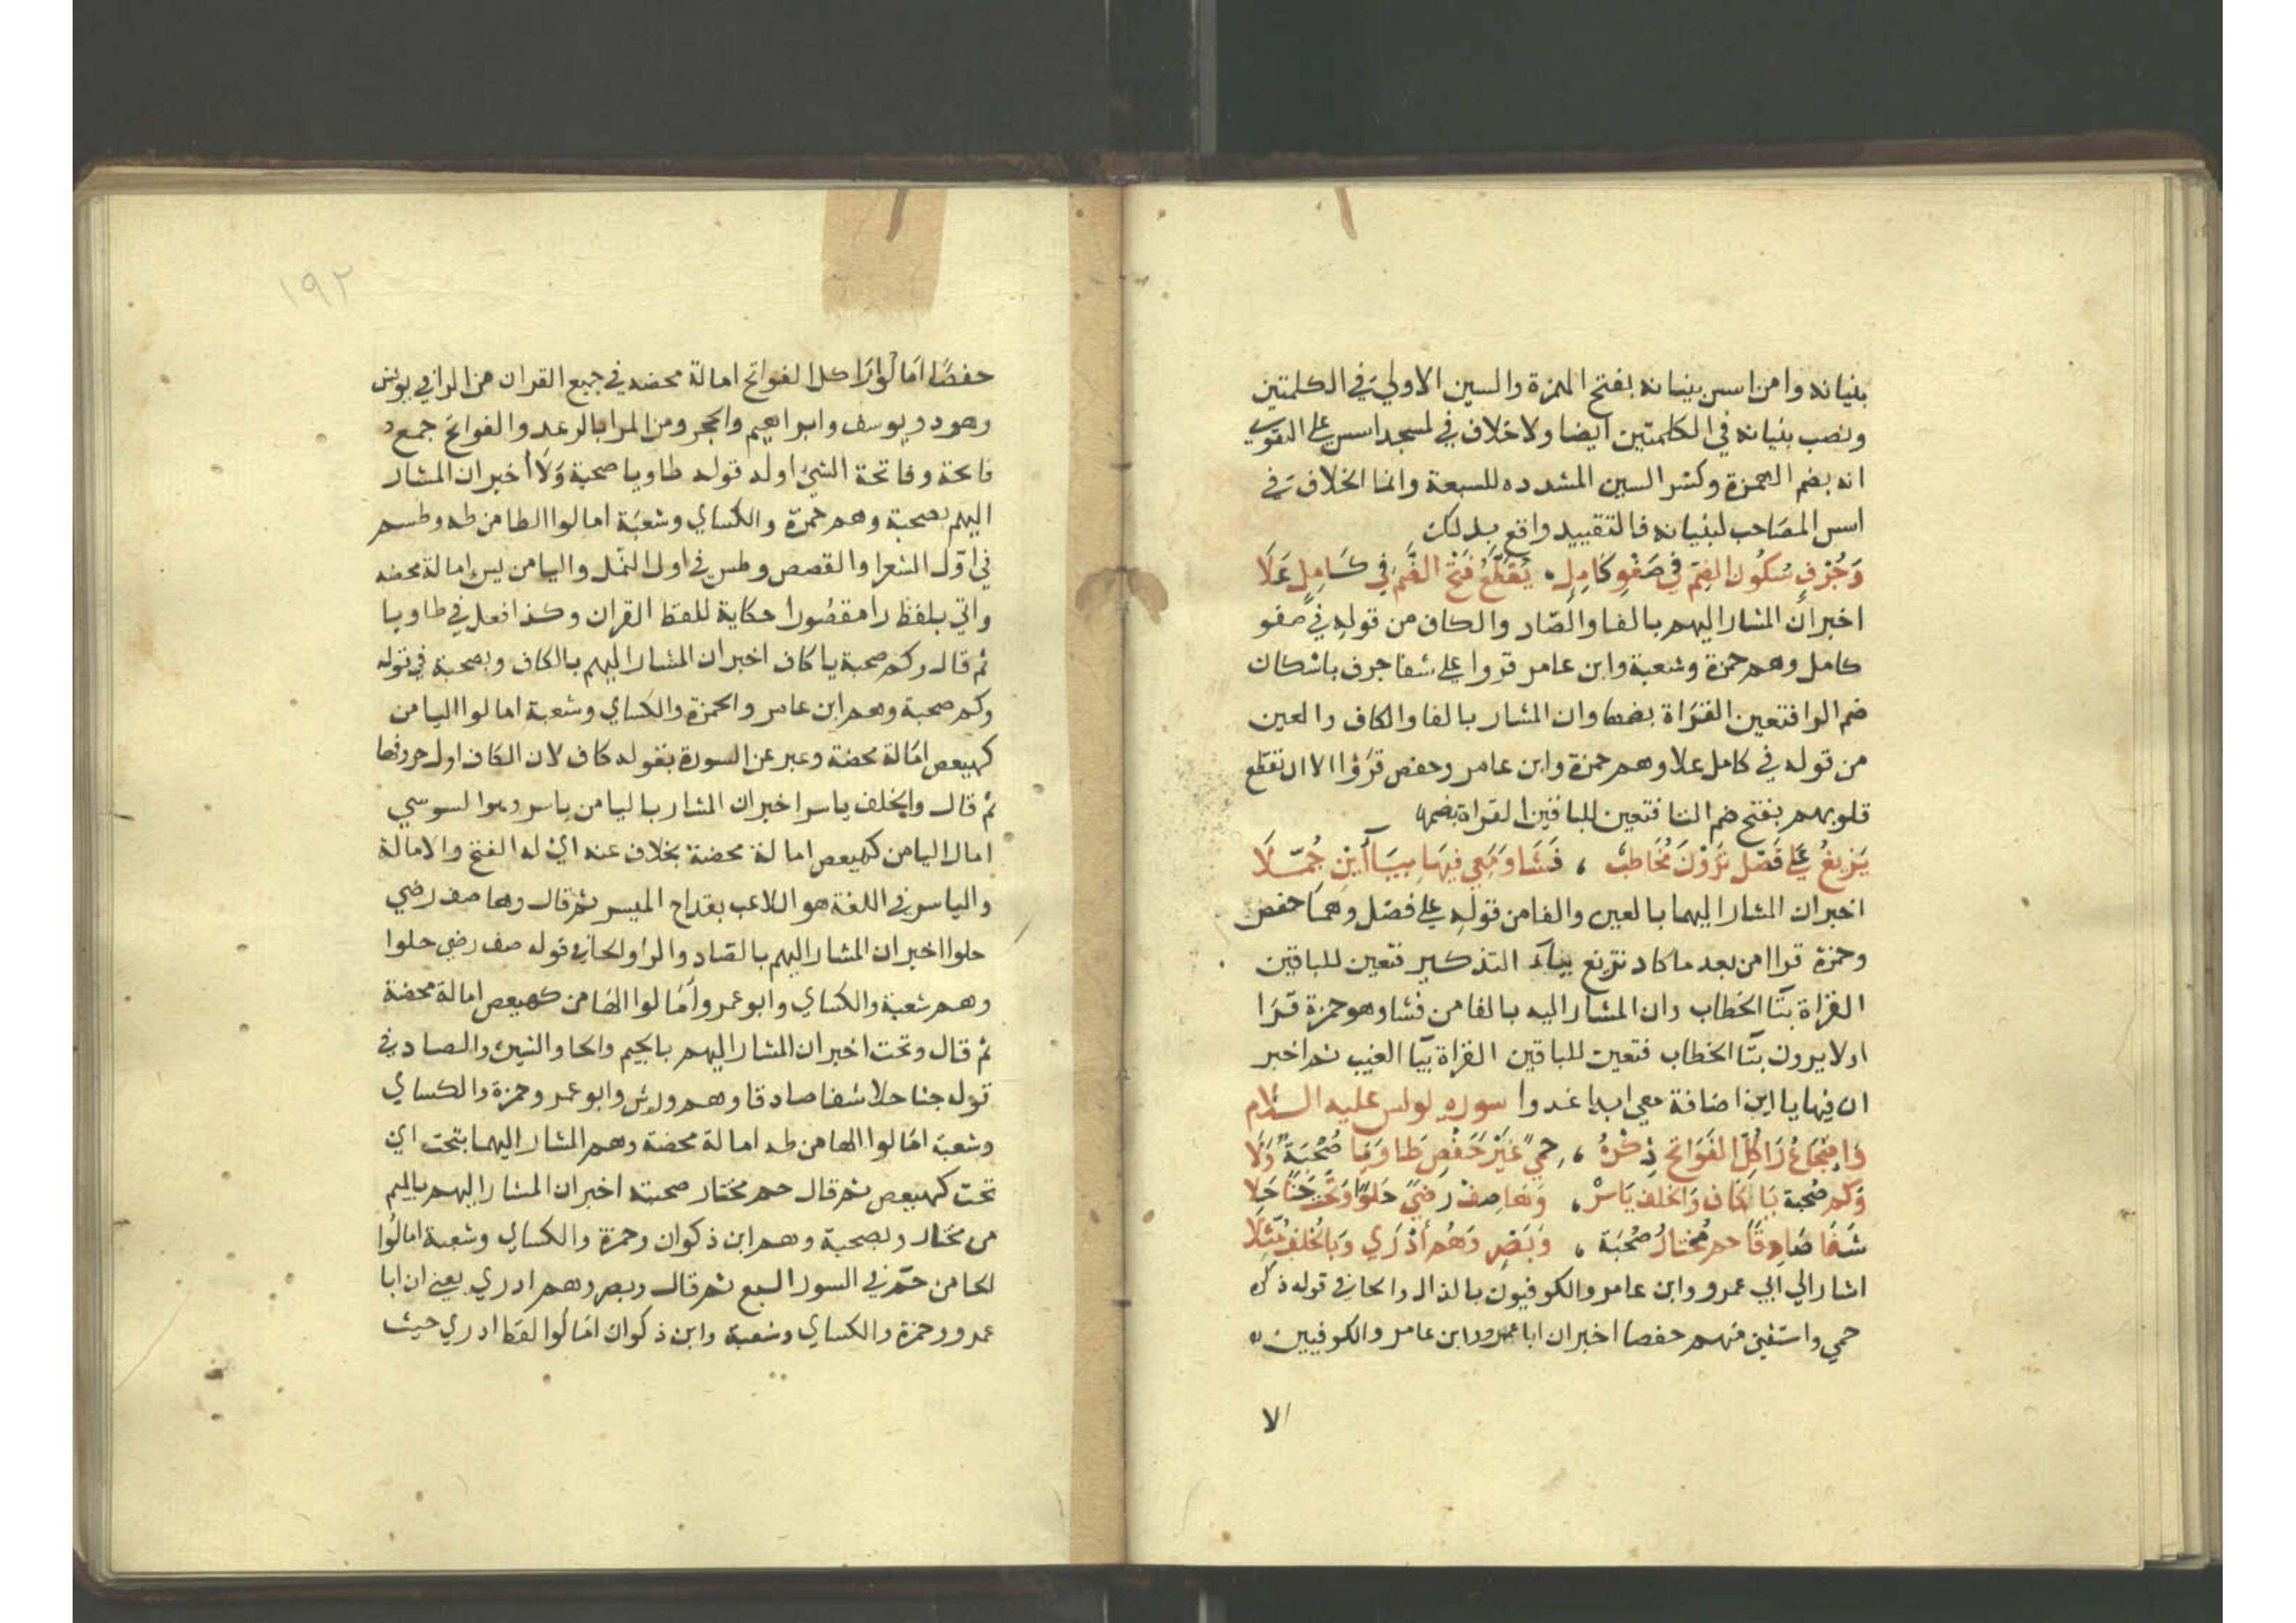 بنيانه وامن اسس بنيانه بفتح الهمزة والسين الاولي في الكلمتين
ونصب بنيانه في الكلمتين ايضا ولا خلاف في لمسجد اسس علي التقوي
انه بضم الهمزة وكسر السين المشدده للسبعة وانما الخلاف في
اسس المصاحب لبنيانه فالتقييد واقع بذلك
وَجُرْفٍ سُكُون الضِم في صَفْوِ كَامِلٍ ، تُقَطَّعُ فَتْحُ الضَّمِ في كَامِلٍ عَلَا
اخبر ان المشار اليهم بالفا والصاد والكاف من قوله في صفو
كامل وهم حمزة وشعبة وابن عامر قروا علي شفا جرف باسكان
ضم الرا فتعين القراة بضمها وان المشار بالفا والكاف والعين
من قوله في كامل علا وهم حمزة وابن عامر وحفص قرؤا الا ان تقطع
قلوبهم بفتح ضم التا فتعين للباقين القراة بضمها
يَزِيغُ عَلي فَصْل تَرَوْنَ مُخَاطِبٌ ، فَشَا وَمَعِي فِيهَا بِيَاأَيْنِ جُمّلَا
اخبر ان المشار اليهما بالعين والفا من قوله علي فصل وهما حفص
وحمزة قرا من بعد ما كاد تزيغ بياء التذكير فتعين للباقين
القراة بتا الخطاب وان المشار اليه بالفا من فشا وهو حمزة قرا
اولا يرون بتا الخطاب فتعين للباقين القراة بيا الغيب ثم اخبر
ان فيها يا اين اضافة معي ابدا غدوا سوره يونس عليه السلام
وَاِضْجَاعُ رَا كُلّ الفَوَاتحِ ذِكْرُهُ ، حِمًي غَيْرَ حَفْصٍ طَا وَيَا صُحْبَةٌ وَلَا
وَكم صُحْبة يَا كَاف وَالخلف يَاسِرٌ ، وَهَا صِفْ رِضيً حَلوًا وَتَحْتَ جَنًا حَلا
شَفَا صَادِقًا حم مُخْتَارُ صُحْبَة ، وَبَصْرٍ وَهُم أَدْرَي وَبِالخُلفِ مُثّلَا
اشار الي ابي عمرو وابن عامر والكوفيون بالذال والحا في قوله ذكره
حمي واستثني منهم حفصا اخبر ان ابا عمرو وابن عامر والكوفيين
الا
١٩٢
حفصًا امَالُوا رَا كل الفواتح امالة محضه في جميع القران من الر في يونس
وهود ويوسف وابراهيم والحجر ومن المرا بالرعد والفواتح جمع
فاتحة وفاتحة الشي اوله قوله طا ويا صحبة وَلَا اخبر ان المشار
اليهم بصحبة وهم حمزة والكساي وشعبَة امالوا الطا من طه وطسم
في اوّل الشعرا والقصص وطس في اول النمل واليا من يس امالة محضه
واتي بلفظ را مقصُورا حكاية للفظ القران وكذا فعل في طا ويا
ثم قال وكم صحبة يا كاف اخبر ان المشار اليهم بالكاف وبصحبة في قوله
وكم صحبة وهم ابن عامر والحمزة والكساي وشعبة امالوا اليا من
كهيعص امَالة محضة وعبر عن السورة بقوله كاف لان الكاف اول حروفها
ثم قال والخلف ياسر اخبر ان المشار باليا من ياسر وهو السوسي
امال اليا من كهيعص امالة محضة بخلاف عنه اي له الفتح والامالة
والياسر في اللغة هو اللاعب بقداح الميسر ثم قال وها صف رضي
حلوا اخبر ان المشار اليهم بالصاد والرا والحا في قوله صف رضي حلوا
وهم شعبة والكساي وابو عمرو أمَالوا الها من كهيعص امالة محضة
ثم قال وتحت اخبر ان المشار اليهم بالجيم والحا والشين والصاد في
قوله جنا حلا شفا صادقا وهم ورش وابو عمرو وحمزة والكساي
وشعبة امَالوا الها من طه امالة محضة وهم المشار اليهما بتحت اي
تحت كهيعص ثم قال حم مختار صحبته اخبر ان المشار اليهم بالميم
من مختار وبصحبة وهم ابن ذكوان وحمزة والكساي وشعبة امالُوا
الحا من حمّ في السور السبع ثم قال وبصر وهم ادري يعني ان ابا
عمرو وحمزة والكساي وشعبة وابن ذكوان امَالُوا لفظ ادري حيث